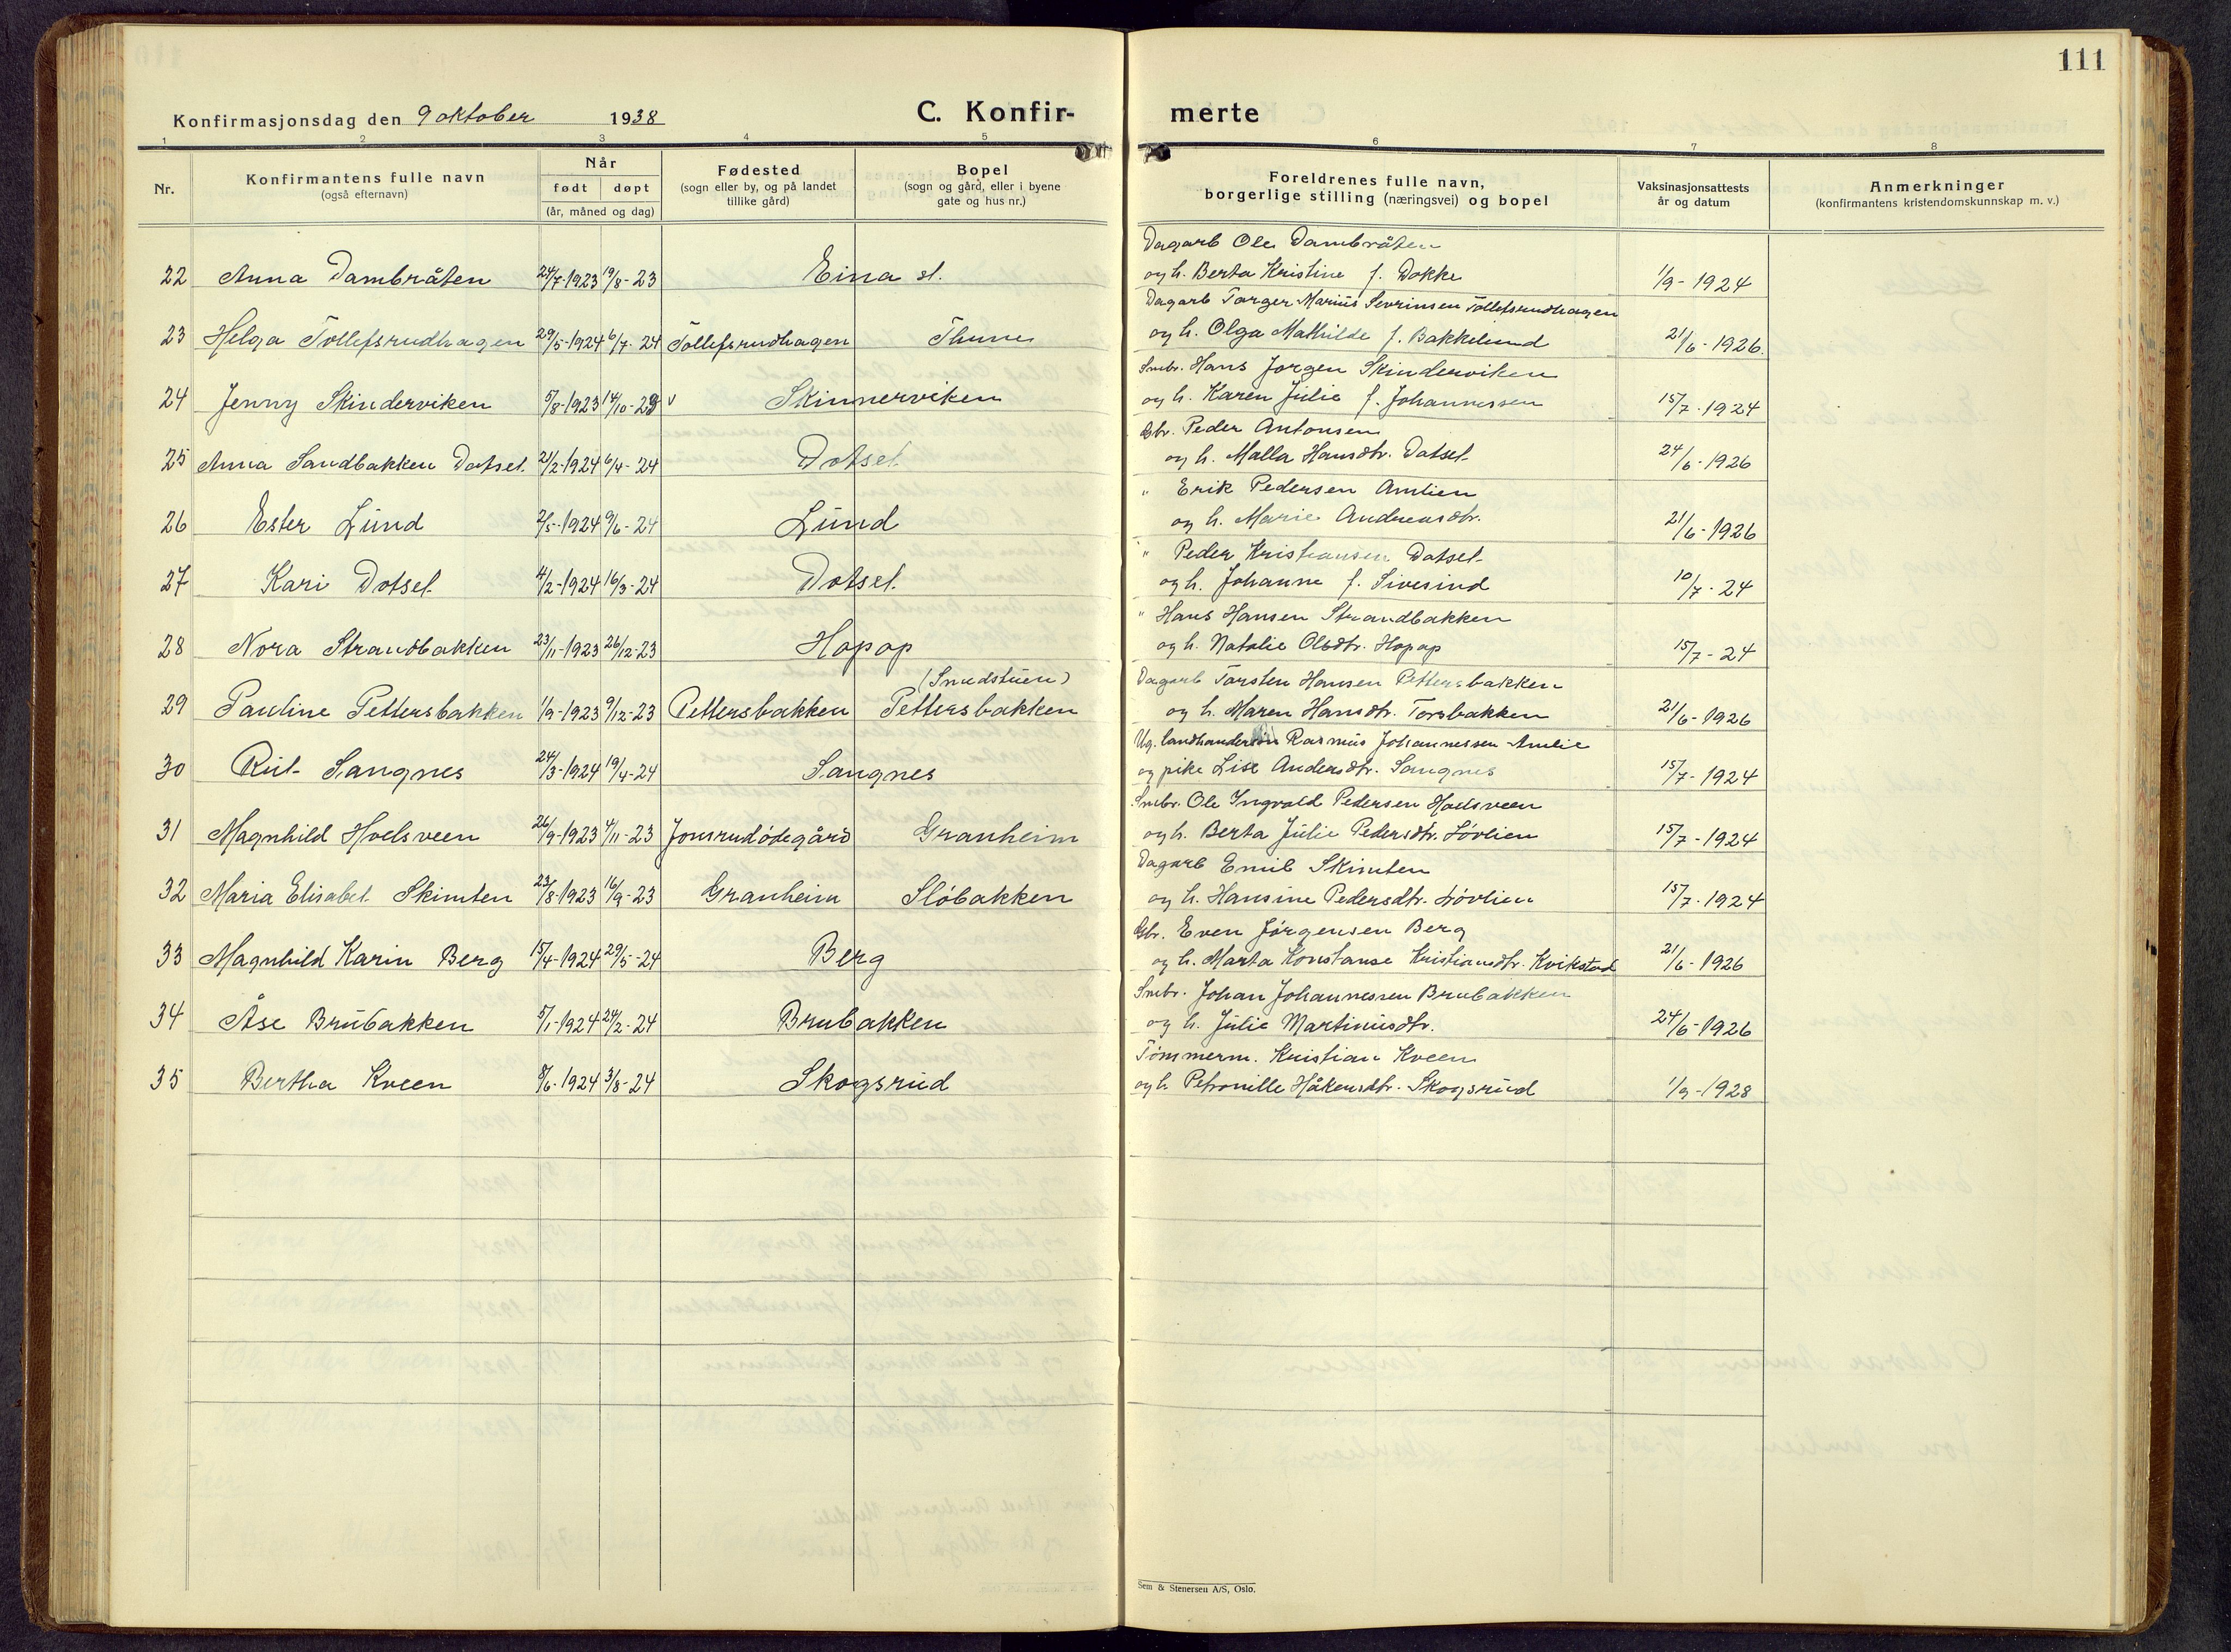 111
Konfirmasjonsdag den 9 oktober 1938 C. Konfir- merte
1 2 3 4 5 6 7 8
Nr. Konfirmantens fulle navn (også efternavn) Når født døpt (år, måned og dag) Fødested (sogn eller by, og på landet tillike gård) Bopel (sogn og gård, eller i byene gate og hus nr.) Foreldrenes fulle navn, borgerlige stilling (næringsvei) og bopel Vaksinasjonsattests år og datum Anmerkninger (konfirmantens kristendomskunnskap m. v.)
Dagarb Ole Dambråten
22 Anna Dambråten 24/7-1923 19/8-23 Eina st. og h. Berta Kristine f. Dokke 1/9-1924
Dagarb Torger Marius Sevrinsen Tollefsrudhagen
23 Helga Tollefsrudhagen 29/5-1924 6/7-24 Tollefsrudhagen Thune og h. Olga Mathilde f. Bakkelund 21/6-1926.
Smbr. Hans Jorgen Skinderviken
24 Jenny Skinderviken 5/8-1923 14/10-23 v Skinnerviken og h. Karen Julie f. Johannessen 15/7-1924
Gbr. Peder Antonsen
25 Anna Sandbakken Dotset 21/2-1924 6/4-24 Dotset og h. Malla Hansdtr. Dotset 24/6-1926
" Erik Pedersen Amlien
26 Ester Lund 2/5-1924 9/6-24 Lund og h. Marie Andreasdtr. 21/6-1926
" Peder Kristiansen Dotset
27 Kari Dotset 4/2-1924 16/3-24 Dotset og h. Johanne f. Sivesind 10/7-24
" Hans Hansen Strandbakken
28 Nora Strandbakken 23/11-1923 26/12-23 Hopop og h. Natalie Olsdtr. Hopop 15/7-24
(Snudstuen) Dagarb Torsten Hansen Pettersbakken
29 Pauline Pettersbakken 1/9-1923 9/12-23 Pettersbakken Pettersbakken og h. Maren Hansdtr. Torsbakken 21/6-1926
Ug. Rasmus Johannessen Amlie
30 Rut Sangnes 24/3-1924 19/4-24 Sangnes og pike Lise Andersdtr. Sangnes 15/7-1924
Smbr. Ole Ingvald Pedersen Hoelsveen
31 Magnhild Hoelsveen 26/9-1923 4/11-23 Jonsrudødegård Granheim og h. Berta Julie Pedersdtr. Løvlien 15/7-1924
Dagarb Emil Skimten
32 Maria Elisabet Skimten 23/8-1923 16/9-23 Granheim Slöbakken og h. Hansine Pedersdtr. Løvlien 15/7-1924
Gbr. Even Jørgensen Berg
33 Magnhild Karin Berg 15/4-1924 29/5-24 Berg og h. Marta Konstanse Kristiansdtr. Kvikstad 21/6-1926
Smbr. Johan Johannessen Brubakken
34 Åse Brubakken 5/1-1924 24/2-24 Brubakken og h. Julie Martiniusdtr. 24/6-1926
Tömmerm. Kristian Kveen
35 Bertha Kveen 8/6-1924 3/8-24 Skogsrud og h. Petronille Håkensdtr. Skogsrud 1/9-1928
Sem & Stenersen A/S, Oslo.